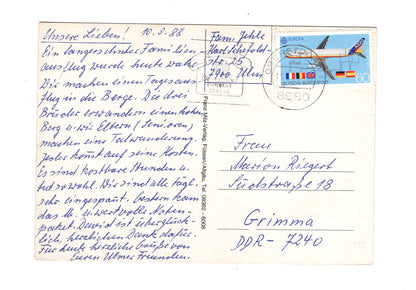 Unsere Lieben! 10.9.88
Ein langersehnter Familien
ausflug wurde heute wahr.
Wir machen einen Tagesaus
flug in die Berge. Die drei
Brüder erwandern einen hohen
Berg u. wir Eltern (Senioren)
machen eine Talwanderung.
Jeder kommt auf seine Kosten.
Es sind kostbare Stunden u.
tut so wohl. Wir sind alle tägl.
sehr eingespannt. Gestern kam
das M. u. wertvolle Noten-
paket. David ist überglück-
lich, herzlichen Dank dafür.
Für heute herzliche Grüße von
Euren Ulmer Freunden.
Fam. Jehle
str. 25
7900 Ulm
Franz Milz-Verlag, Füssen/Allgäu, Tel. 08362 - 6008
EUROPA
DEUTSCHE BUNDESPOST
60
8950
Frau
Marion Riegert
Südstraße 18
Grimma
DDR - 7240